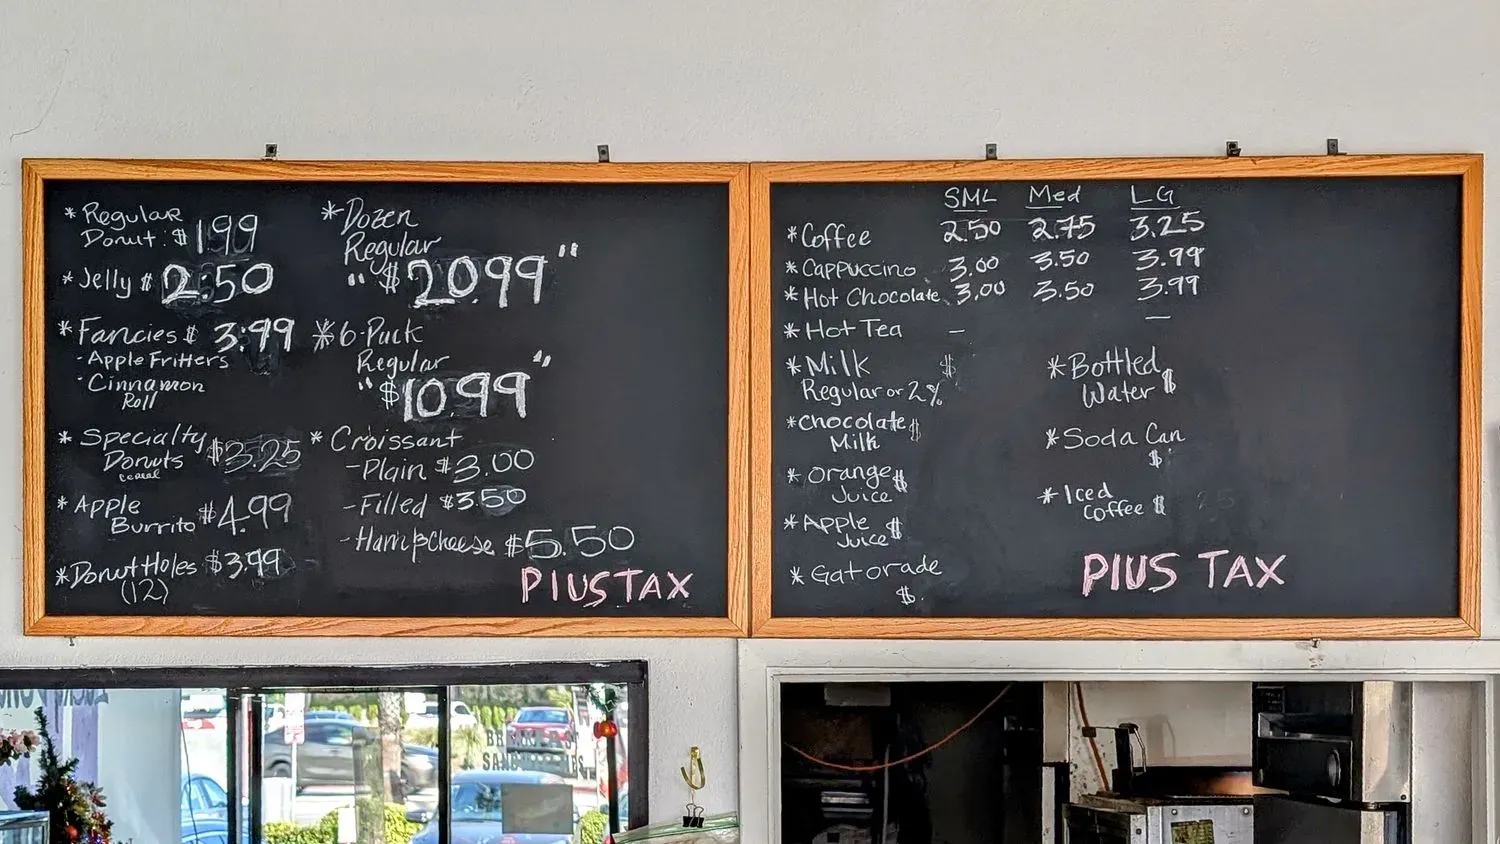 * Regular
Donut: $1.99
* Jelly $2.50
* Fancies $3.99
- Apple Fritters
- Cinnamon
Roll
* Specialty
Donuts $3.25
cereal
* Apple
Burrito $4.99
* Donut Holes $3.99
(12)
* Dozen
Regular
"$20.99"
* 6-Pack
Regular
"$10.99"
* Croissant
- Plain $3.00
- Filled $3.50
- Ham & Cheese $5.50
PlUS TAX
SML Med LG
* Coffee 2.50 2.75 3.25
* Cappuccino 3.00 3.50 3.99
* Hot Chocolate 3.00 3.50 3.99
* Hot Tea – –
* Milk $
Regular or 2%
* Chocolate $
Milk
* Orange $
Juice
* Apple $
Juice
* Gatorade
$.
* Bottled
Water $
* Soda Can
$
* Iced
Coffee $
PlUS TAX
SANDWICHES